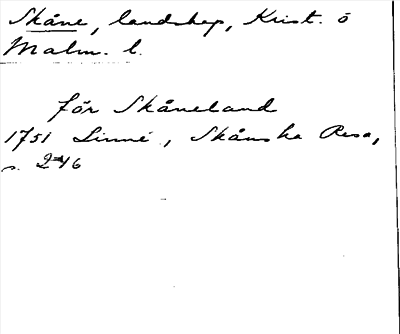 Skåne, landskap, Krist. o
Malm. l.
för Skåneland
1751 Linné, Skånska Resa,
s. 246